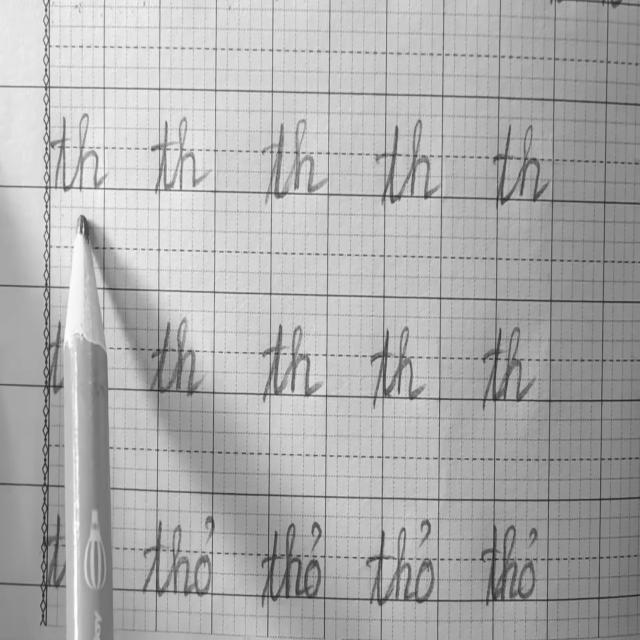 th th th th th
th th th th
thỏ thỏ thỏ thỏ